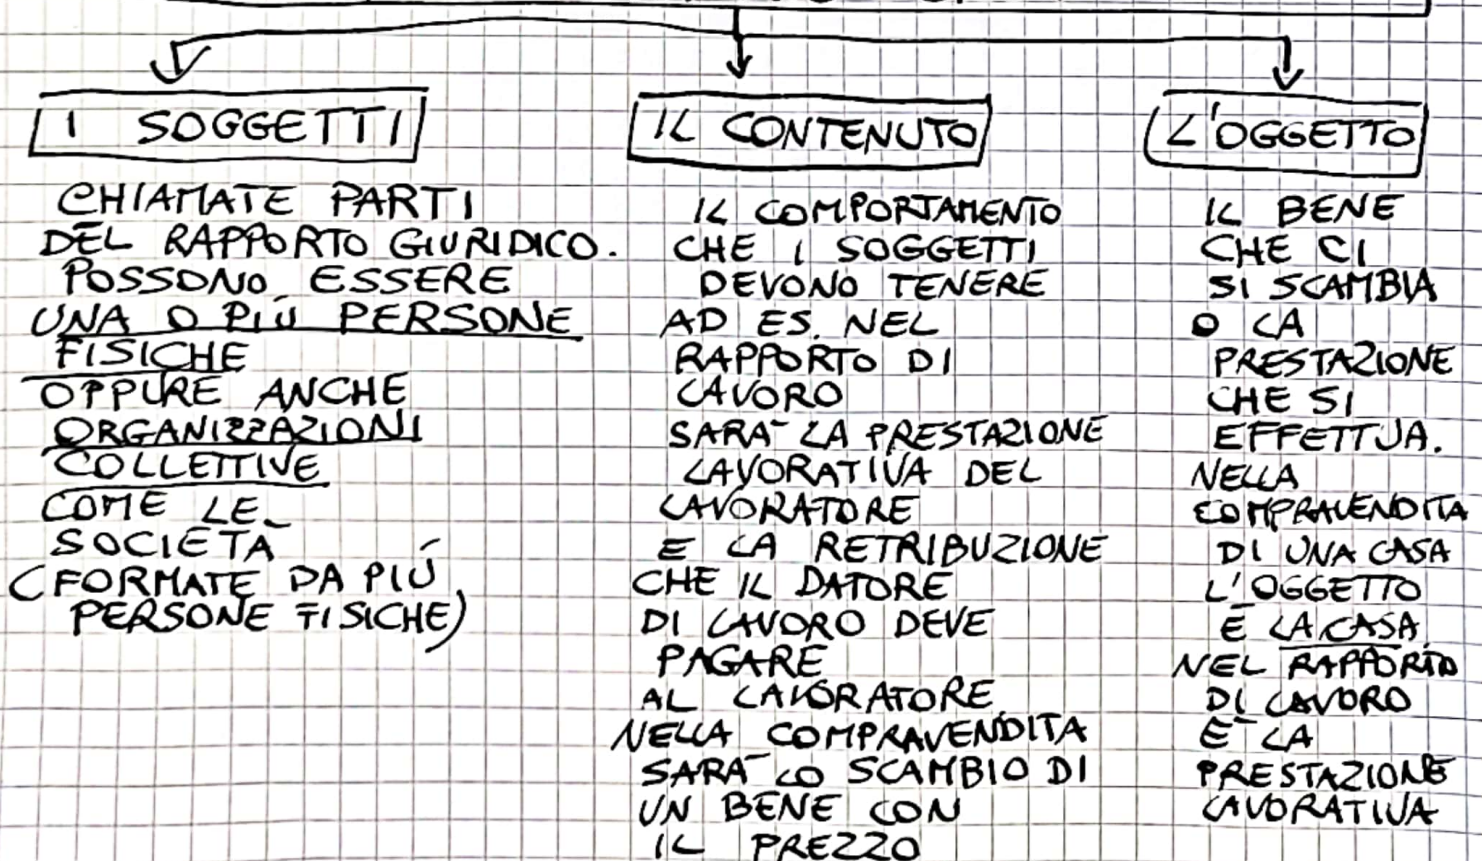 I SOGGETTI
CHIAMATE PARTI
DEL RAPPORTO GIURIDICO.
POSSONO ESSERE
UNA O PIÙ PERSONE
FISICHE
OPPURE ANCHE
ORGANIZZAZIONI
COLLETTIVE
COME LE
SOCIETÀ
(FORMATE DA PIÙ
PERSONE FISICHE)
IL CONTENUTO
IL COMPORTAMENTO
CHE I SOGGETTI
DEVONO TENERE
AD ES. NEL
RAPPORTO DI
LAVORO
SARÀ LA PRESTAZIONE
LAVORATIVA DEL
LAVORATORE
E LA RETRIBUZIONE
CHE IL DATORE
DI LAVORO DEVE
PAGARE
AL LAVORATORE.
NELLA COMPRAVENDITA
SARÀ LO SCAMBIO DI
UN BENE CON
IL PREZZO
L'OGGETTO
IL BENE
CHE CI
SI SCAMBIA
O LA
PRESTAZIONE
CHE SI
EFFETTUA.
NELLA
COMPRAVENDITA
DI UNA CASA
L'OGGETTO
È LA CASA,
NEL RAPPORTO
DI LAVORO
È LA
PRESTAZIONE
LAVORATIVA